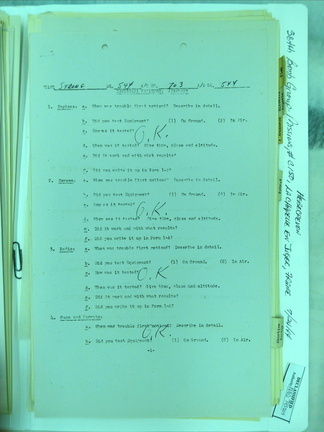 STRONG 544 703 544
1. Engines: a. When was trouble first noticed? Describe in detail.
b. Did you test Equipment? (1) On Ground. (2) In Air.
c. How was it tested?
O.K.
d. When was it tested? Give time, place and altitude.
e. Did it work and with what results?
f. Did you write it up in Form 1a?
2. Camera. a. When was trouble first noticed? Describe in detail.
b. Did you test Equipment? (1) On Ground. (2) In Air.
c. How was it tested?
O.K.
d. When was it tested? Give time, place and altitude.
e. Did it work and with what results?
f. Did you write it up in Form 1a?
3. Radio: a. When was trouble first noticed? Describe in detail.
b. Did you test Equipment? (1) On Ground. (2) In Air.
c. How was it tested?
O.K.
d. When was it tested? Give time, place and altitude.
e. Did it work and with what results?
f. Did you write it up in Form 1a?
4.
a. When was trouble first noticed? Describe in detail.
O.K.
b. Did you test Equipment? (1) On Ground. (2) In Air.
384th Bomb Group
FRANCE
DECLASSIFIED